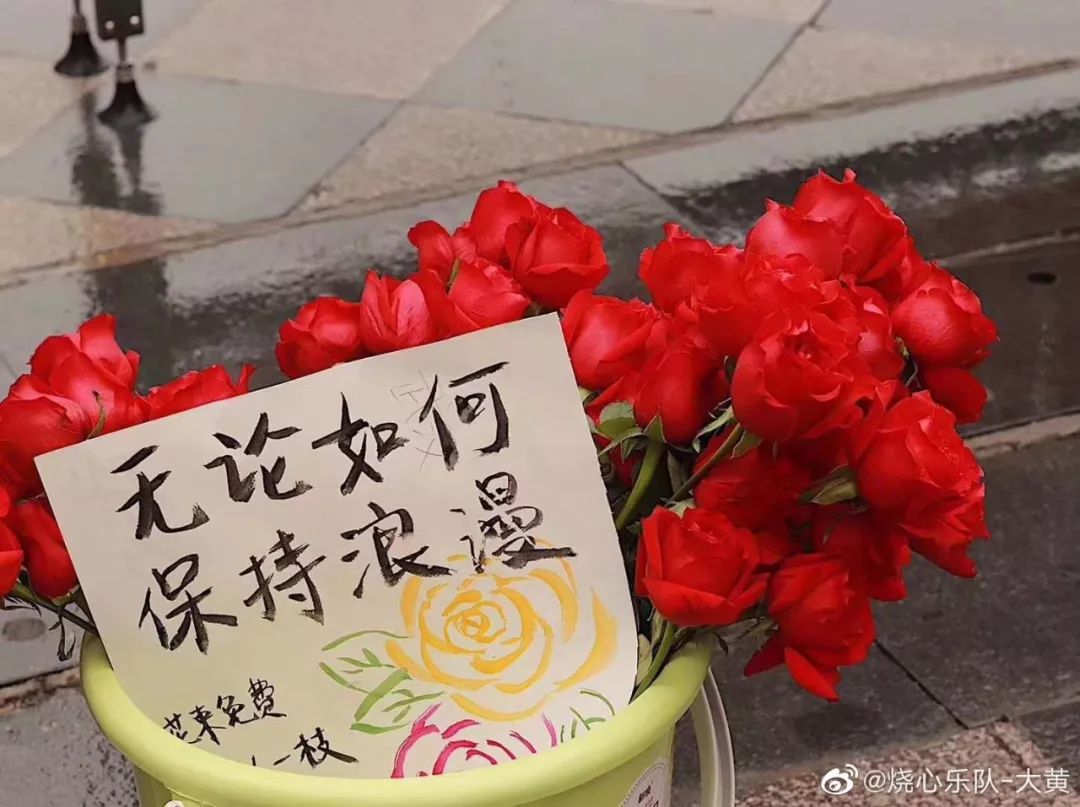 无论如何
保持浪漫
花束免费
一枝
@烧心乐队-大黄